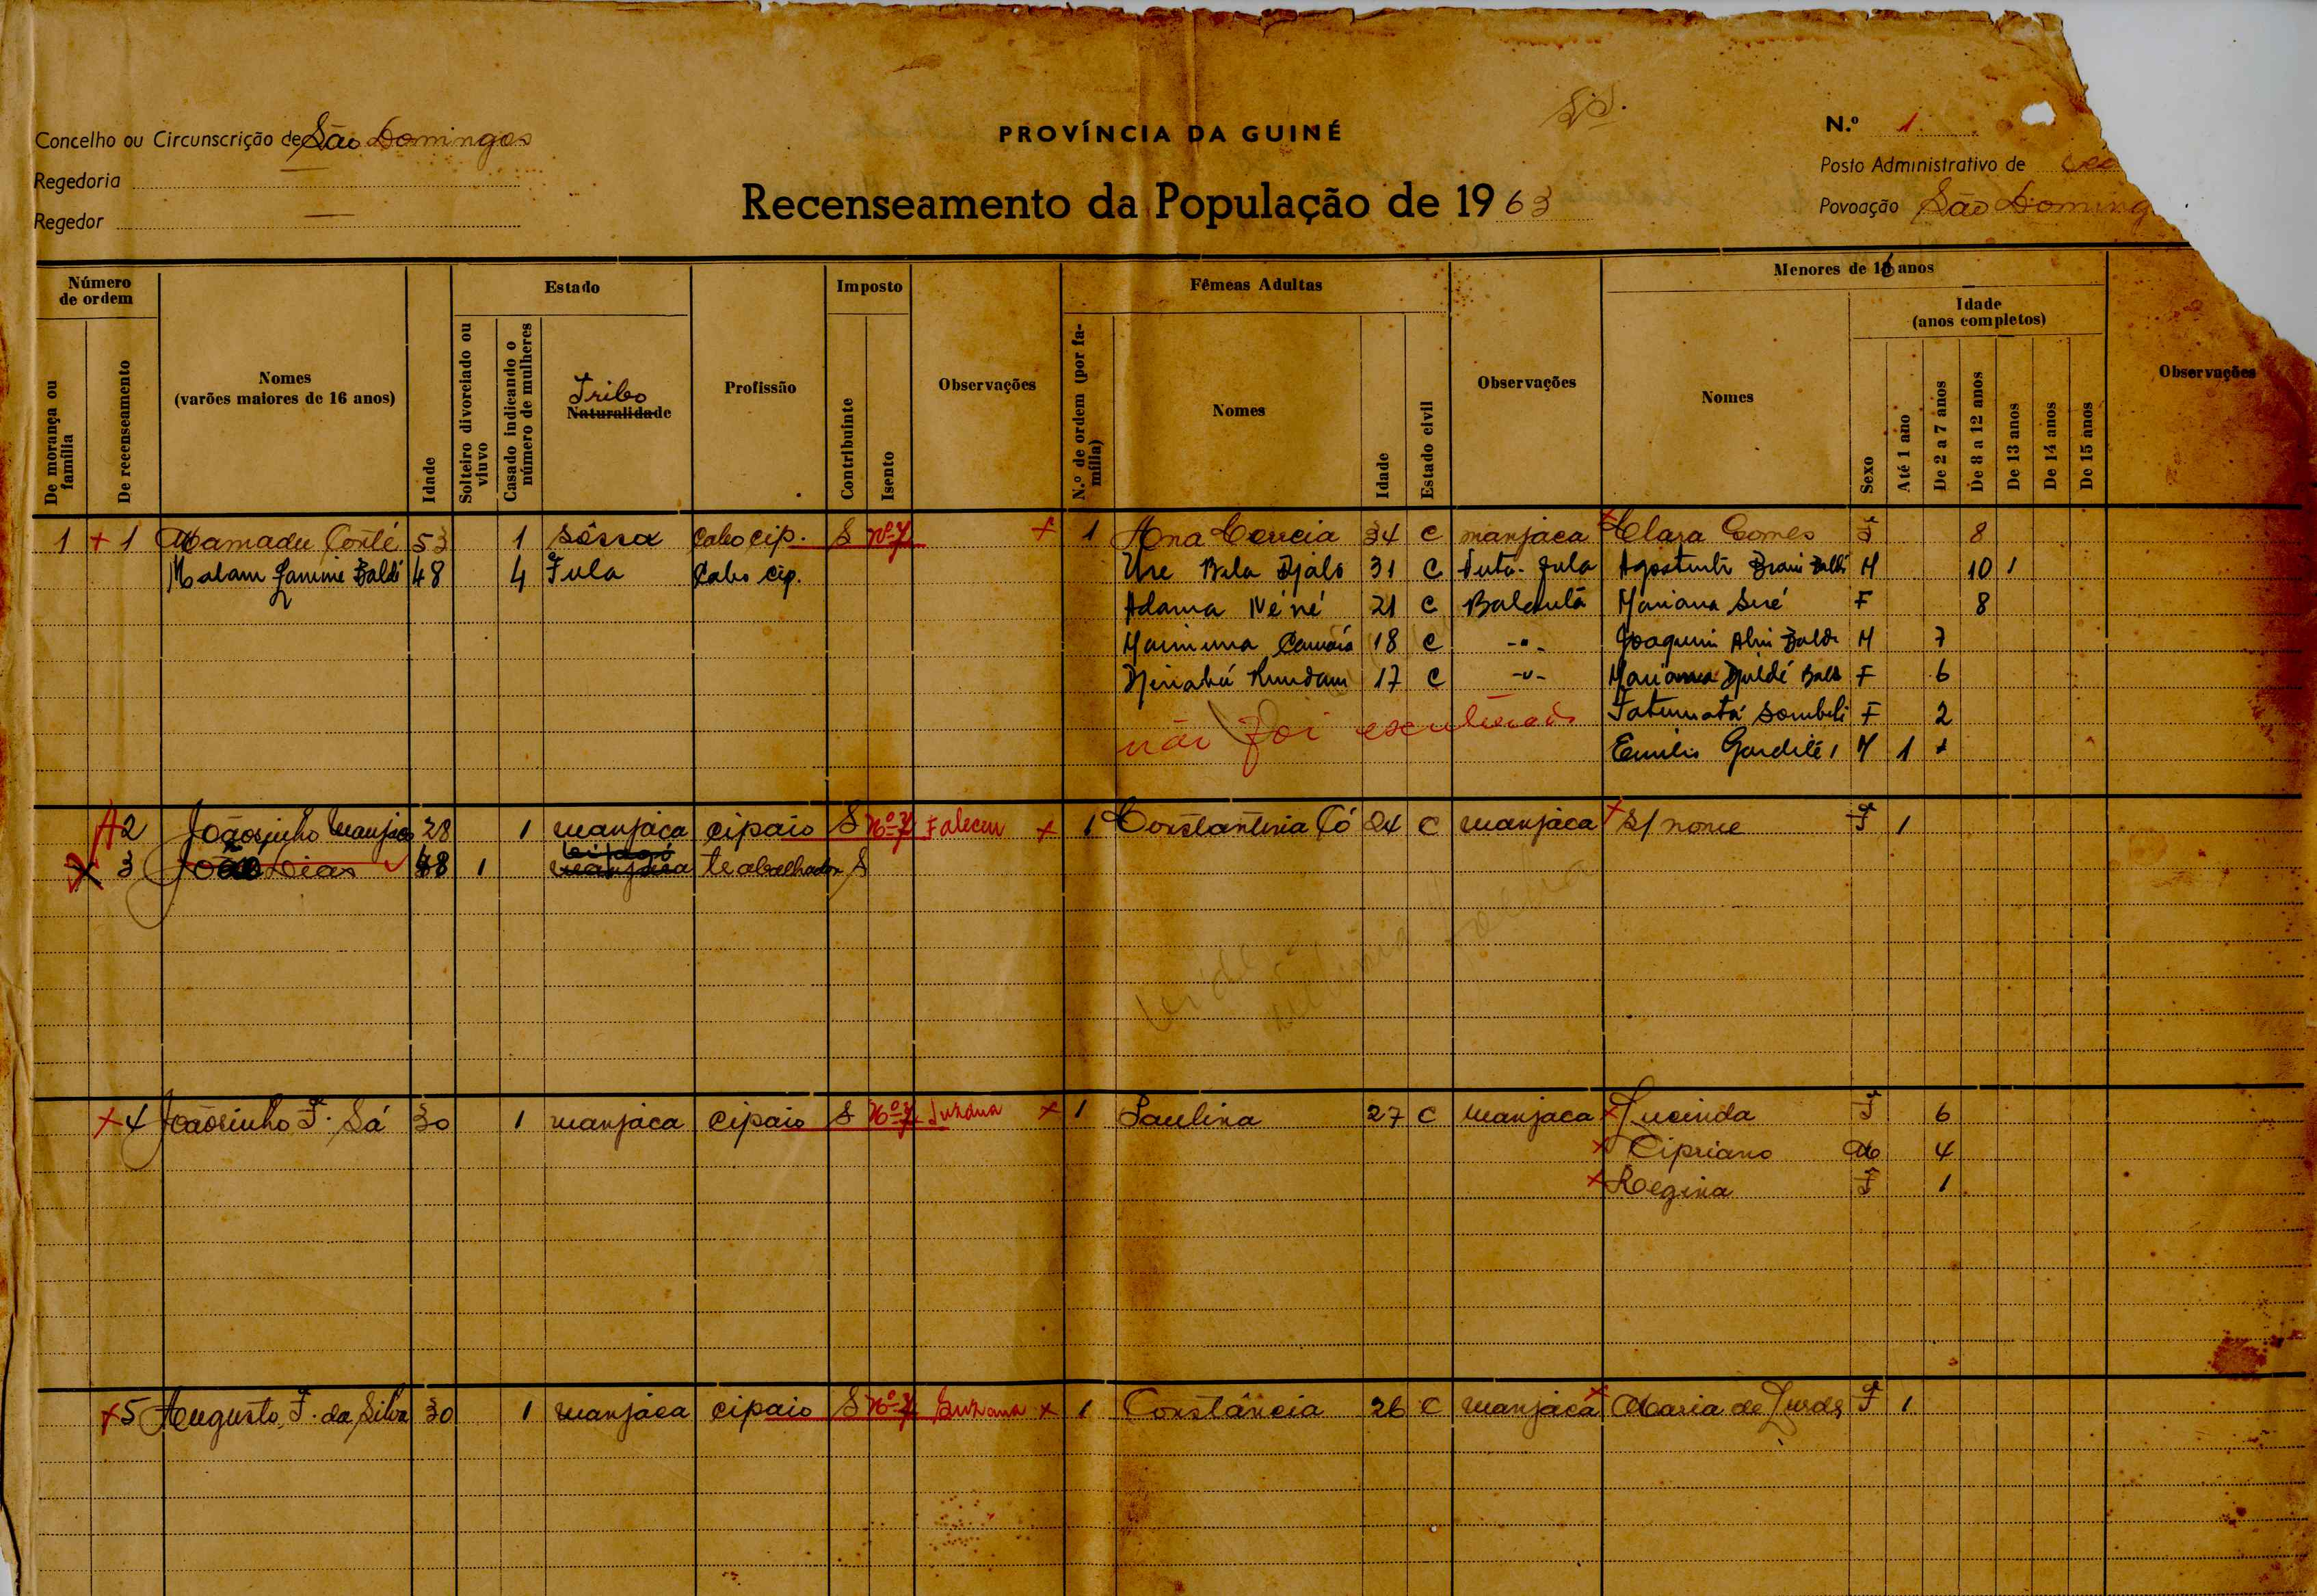 PROVÍNCIA DA GUINÉ
Concelho ou Circunscrição de São Domingos
N.º 1
Regedoria —
Posto Administrativo de
Recenseamento da População de 1963
Regedor —
Povoação São Doming
Número de ordem
Estado
Imposto
Fêmeas Adultas
Menores de 16 anos
Idade
(anos completos)
De morança ou família
De recenseamento
Nomes
(varões maiores de 16 anos)
Idade
Solteiro divorciado ou viuvo
Casado indicando o número de mulheres
Tribo
Naturalidade
Profissão
Contribuinte
Isento
Observações
N.º de ordem (por família)
Nomes
Idade
Estado civil
Observações
Nomes
Sexo
Até 1 ano
De 2 a 7 anos
De 8 a 12 anos
De 13 anos
De 14 anos
De 15 anos
Observações
1 + 1 Mamadu Conté 53 1 sôssa Cabo cip. S nº 7 + 1 Ana Correia 34 C manjaca + Clara Gomes F 8
Malam Lamine Baldé 48 4 Fula Cabo cip. Bela Djalo 31 C Futa-Fula 10 1
Adama Néné 21 C Mariana F 8
18 C -"- Joaquim M 7
17 C -"- F 6
não foi F 2
M 1 +
2 Joãosinho Manjaco 28 1 manjaca cipaio S Nº 7 Faleceu + 1 Constantina Có 24 C manjaca + S/ nome F 1
3 João Dias 48 1 manjaca trabalhador S
+ 4 Joãosinho F. Sá 30 1 manjaca cipaio S Nº 7 Suzana + 1 Paulina 27 C manjaca + Lucinda F 6
+ Cipriano M 4
+ Regina F 1
+ 5 Augusto F. da Silva 30 1 manjaca cipaio S Nº 7 Suzana + 1 Constância 26 C manjaca + Maria de Lurdes F 1